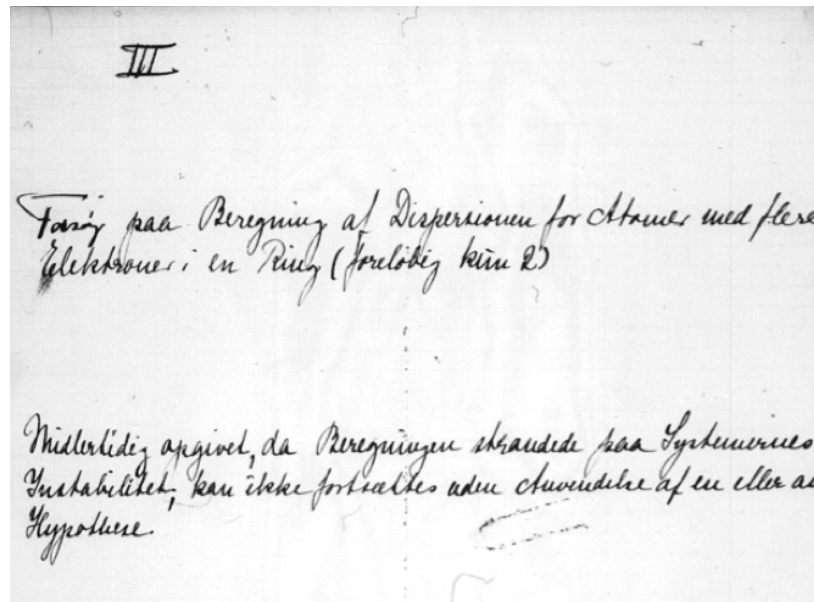 III
Forsøg paa Beregning af Dispersionen for Atomer med flere
Elektroner i en Ring (foreløbig kun 2)
Midlertidig opgivet, da Beregningen strandede paa Systemernes
Instabilitet, kan ikke fortsættes uden Anvendelse af en eller an
Hypothese.